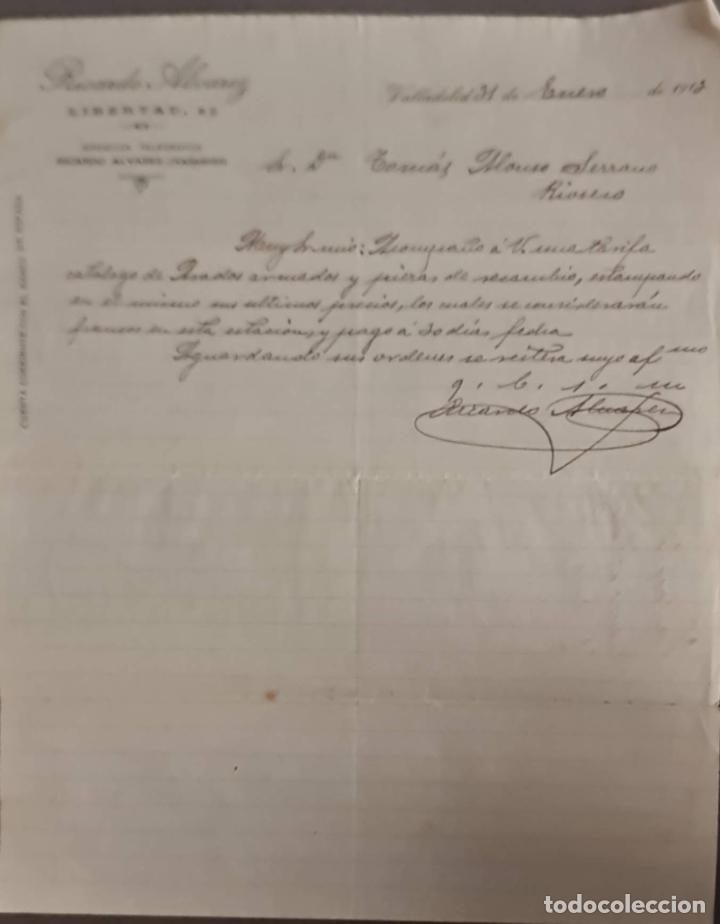 Ricardo Alvarez
LIBERTAD,
DIRECCIÓN TELEGRÁFICA
RICARDO ALVAREZ
CUENTA CORRIENTE CON EL BANCO DE ESPAÑA
Valladolid 31 de Enero de 1912
Sr. Dn Tomás Alonso Serrano
Rioseco
Muy Sr mio: Acompaño á V. una tarifa
catalogo de Arados armados y piezas de recambio, estampando
en el mismo sus ultimos precios, los cuales se considerarán
francos en esta estación, y pago á 30 dias fecha
Aguardando sus ordenes se reitera suyo afmo
q. b. s. m
Ricardo Alvarez
todocoleccion